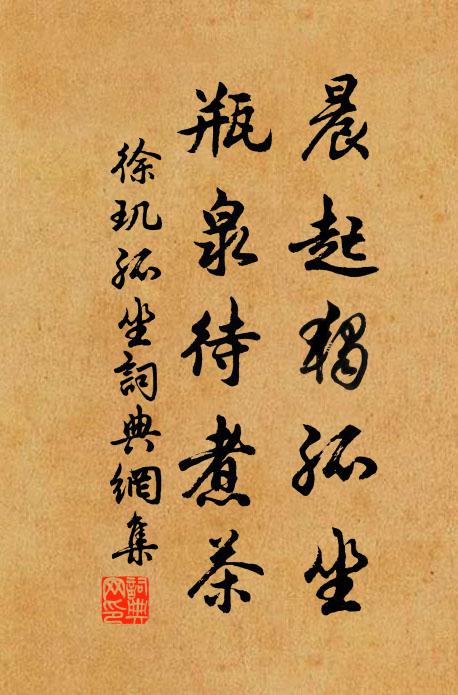 晨起獨孤坐
瓶泉待煮茶
徐玑孤坐詞典網集
詞典网印